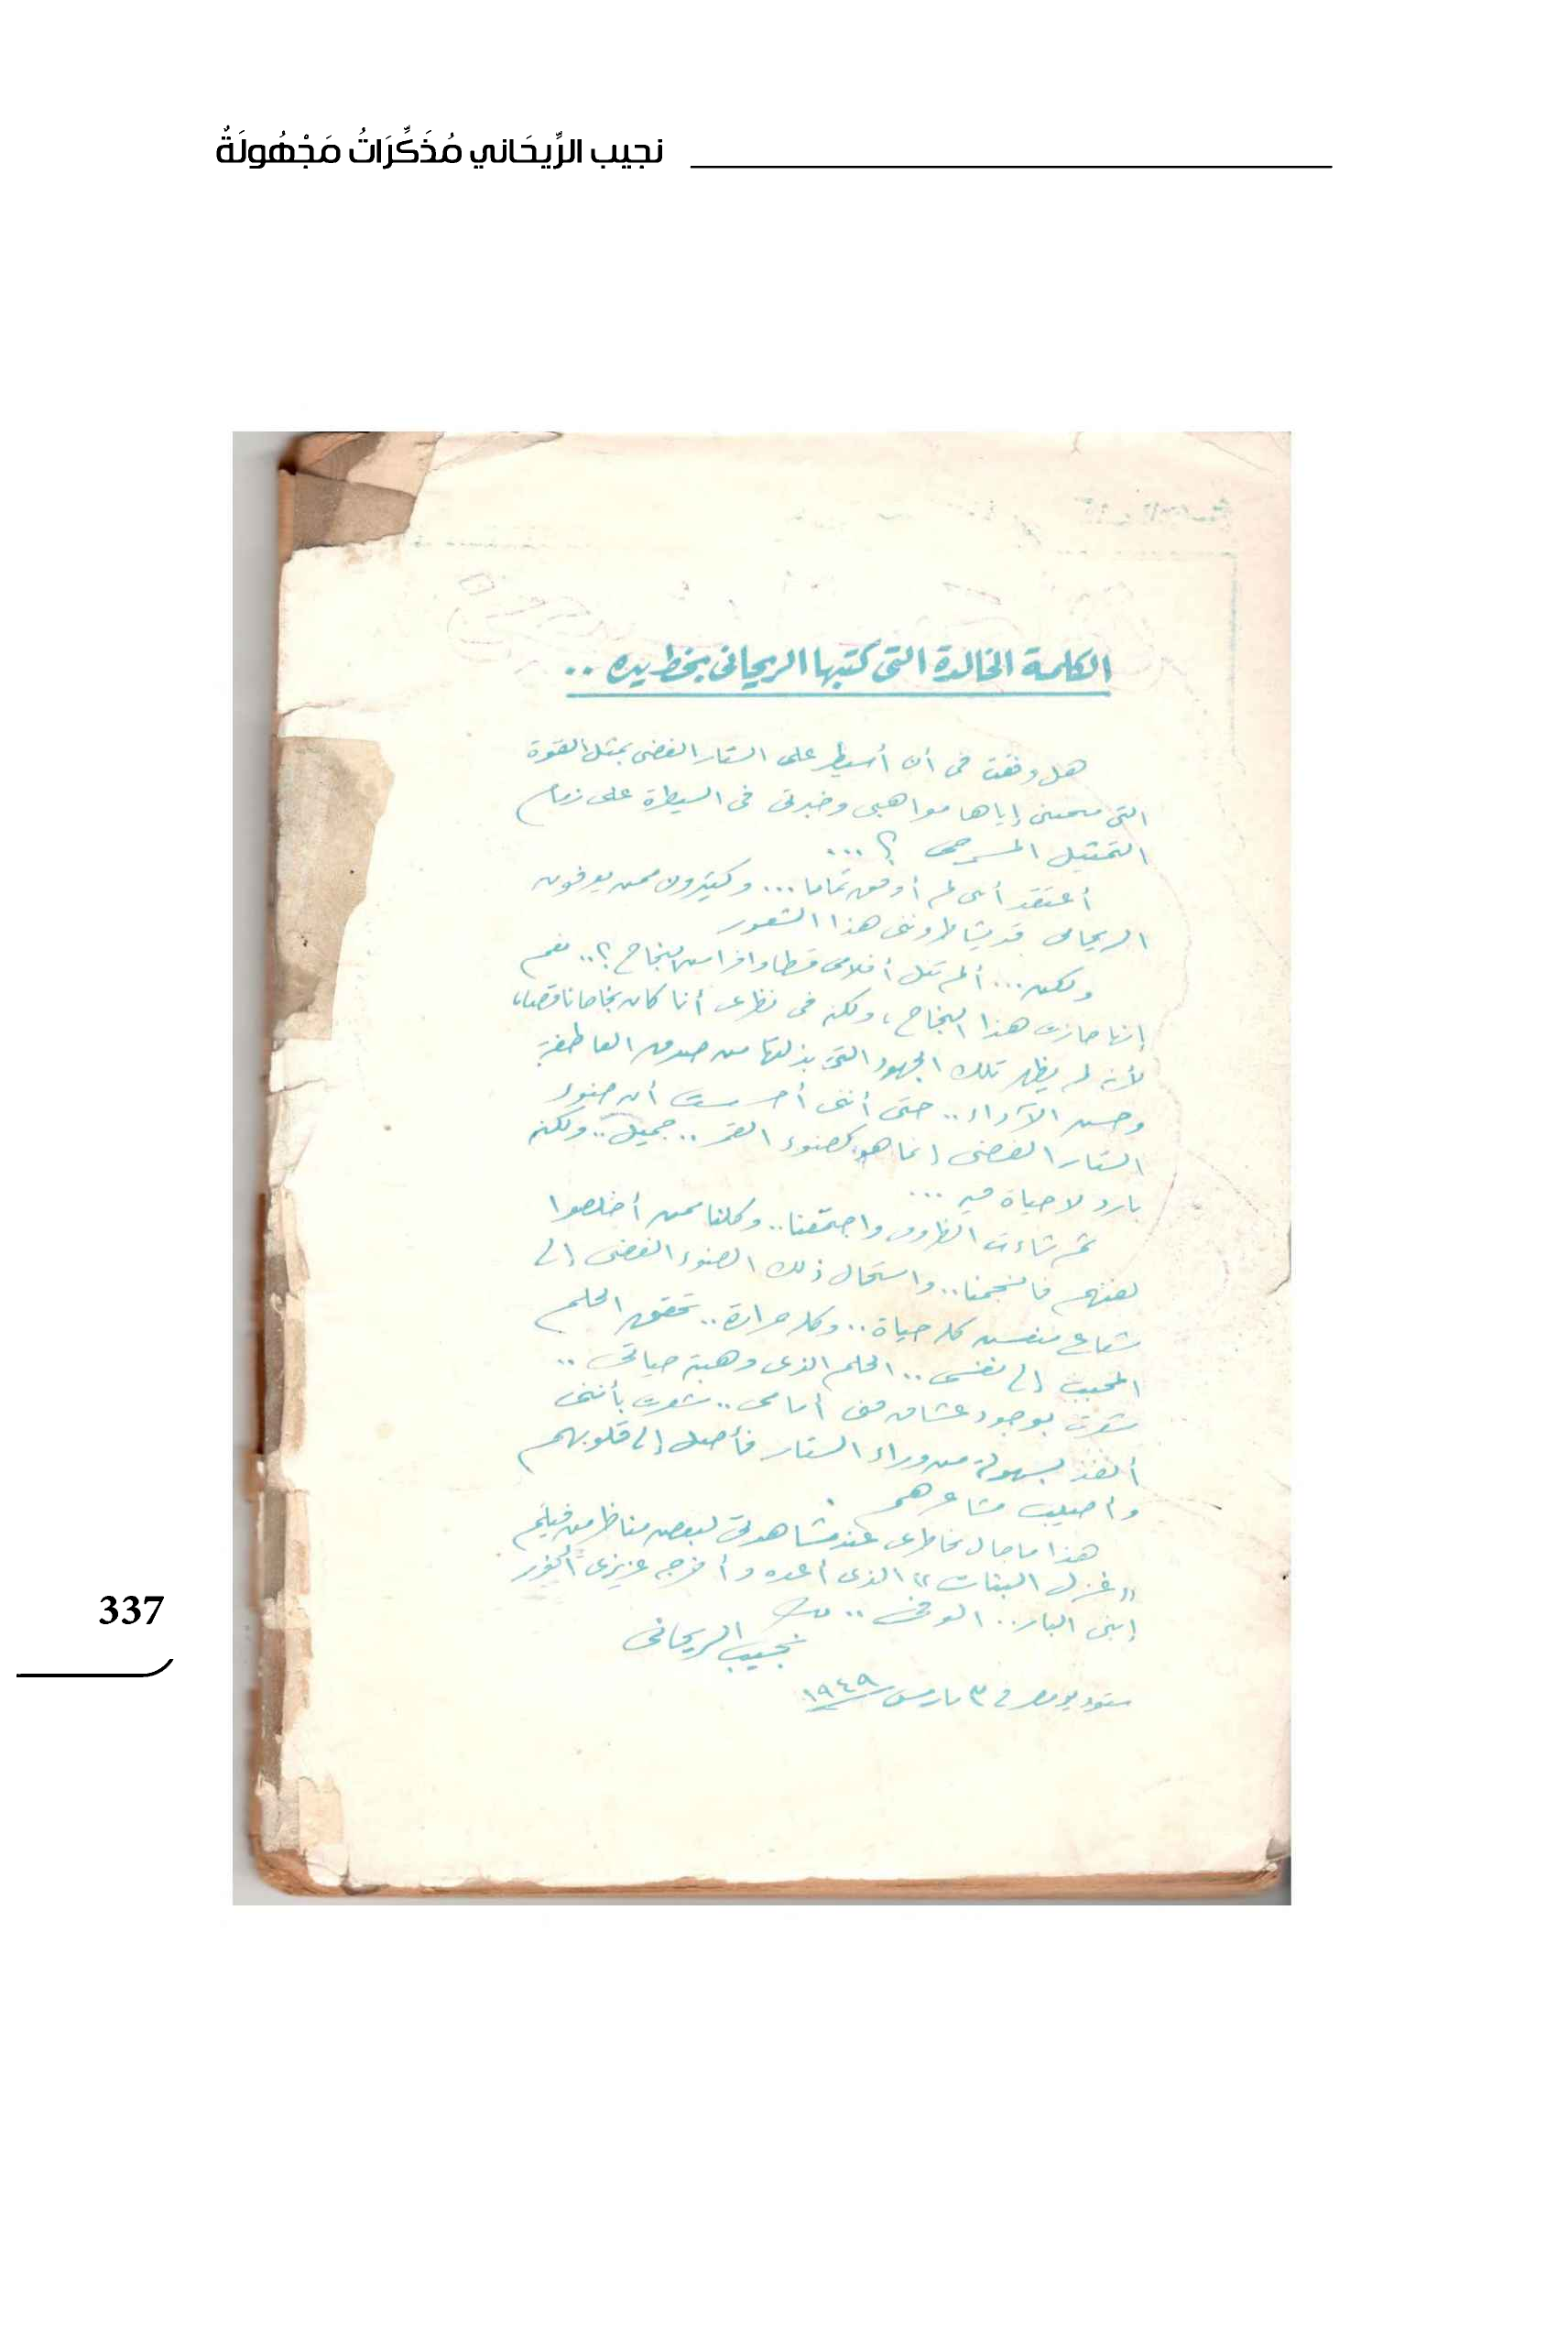 نجيب الرِّيحَاني مُذَكِّرَاتُ مَجْهُولَةٌ
الكلمة الخالدة التى كتبها الريحانى بخط يده ..
هل وفقت فى أن أسيطر على الستار الفضى بمثل القوة
التى منحتنى إياها مواهبى وخبرتى فى السيطرة على زمام
التمثيل المسرحى ؟ ...
أعتقد أنى لم أوفق تماما ... وكثيرون ممن يعرفون
الريحانى قد يشاطروننى هذا الشعور
ولكن ... ألم تنل أفلامى قسطا وافرا من النجاح ؟ .. نعم
إنها حازت هذا النجاح ، ولكنه فى نظرى أنا كان نجاحا ناقصا ،
لأنه لم يظهر تلك الجهود التى بذلتها من صدق العاطفة
وحسن الآداء .. حتى أننى أحسست أن ضوء
الستار الفضى إنما هو كضوء القمر .. جميل .. ولكنه
بارد لا حياة فيه ...
ثم شاءت الظروف واجتمعنا .. وكلنا ممن أخلصوا
لفنهم فانسجمنا .. واستحال ذلك الضوء الفضى إلى
شعاع شمس كله حياة .. وكله حرارة .. تحقق الحلم
المحبب إلى نفسى .. الحلم الذى وهبته حياتى ..
شعرت بوجود عشاق فنى أمامى .. شعرت بأننى
أنفذ بسهولة من وراء الستار فأصل إلى قلوبهم
وأصيب مشاعرهم .
هذا ما جال بخاطرى عند مشاهدتى لبعض مناظر من فيلم
« غزل البنات » الذى أعده وأخرجه عزيزى أنور
إبنى البار .. الوفى ..
نجيب الريحانى
ستوديو مصر فى ٣ مارس ١٩٤٩
337